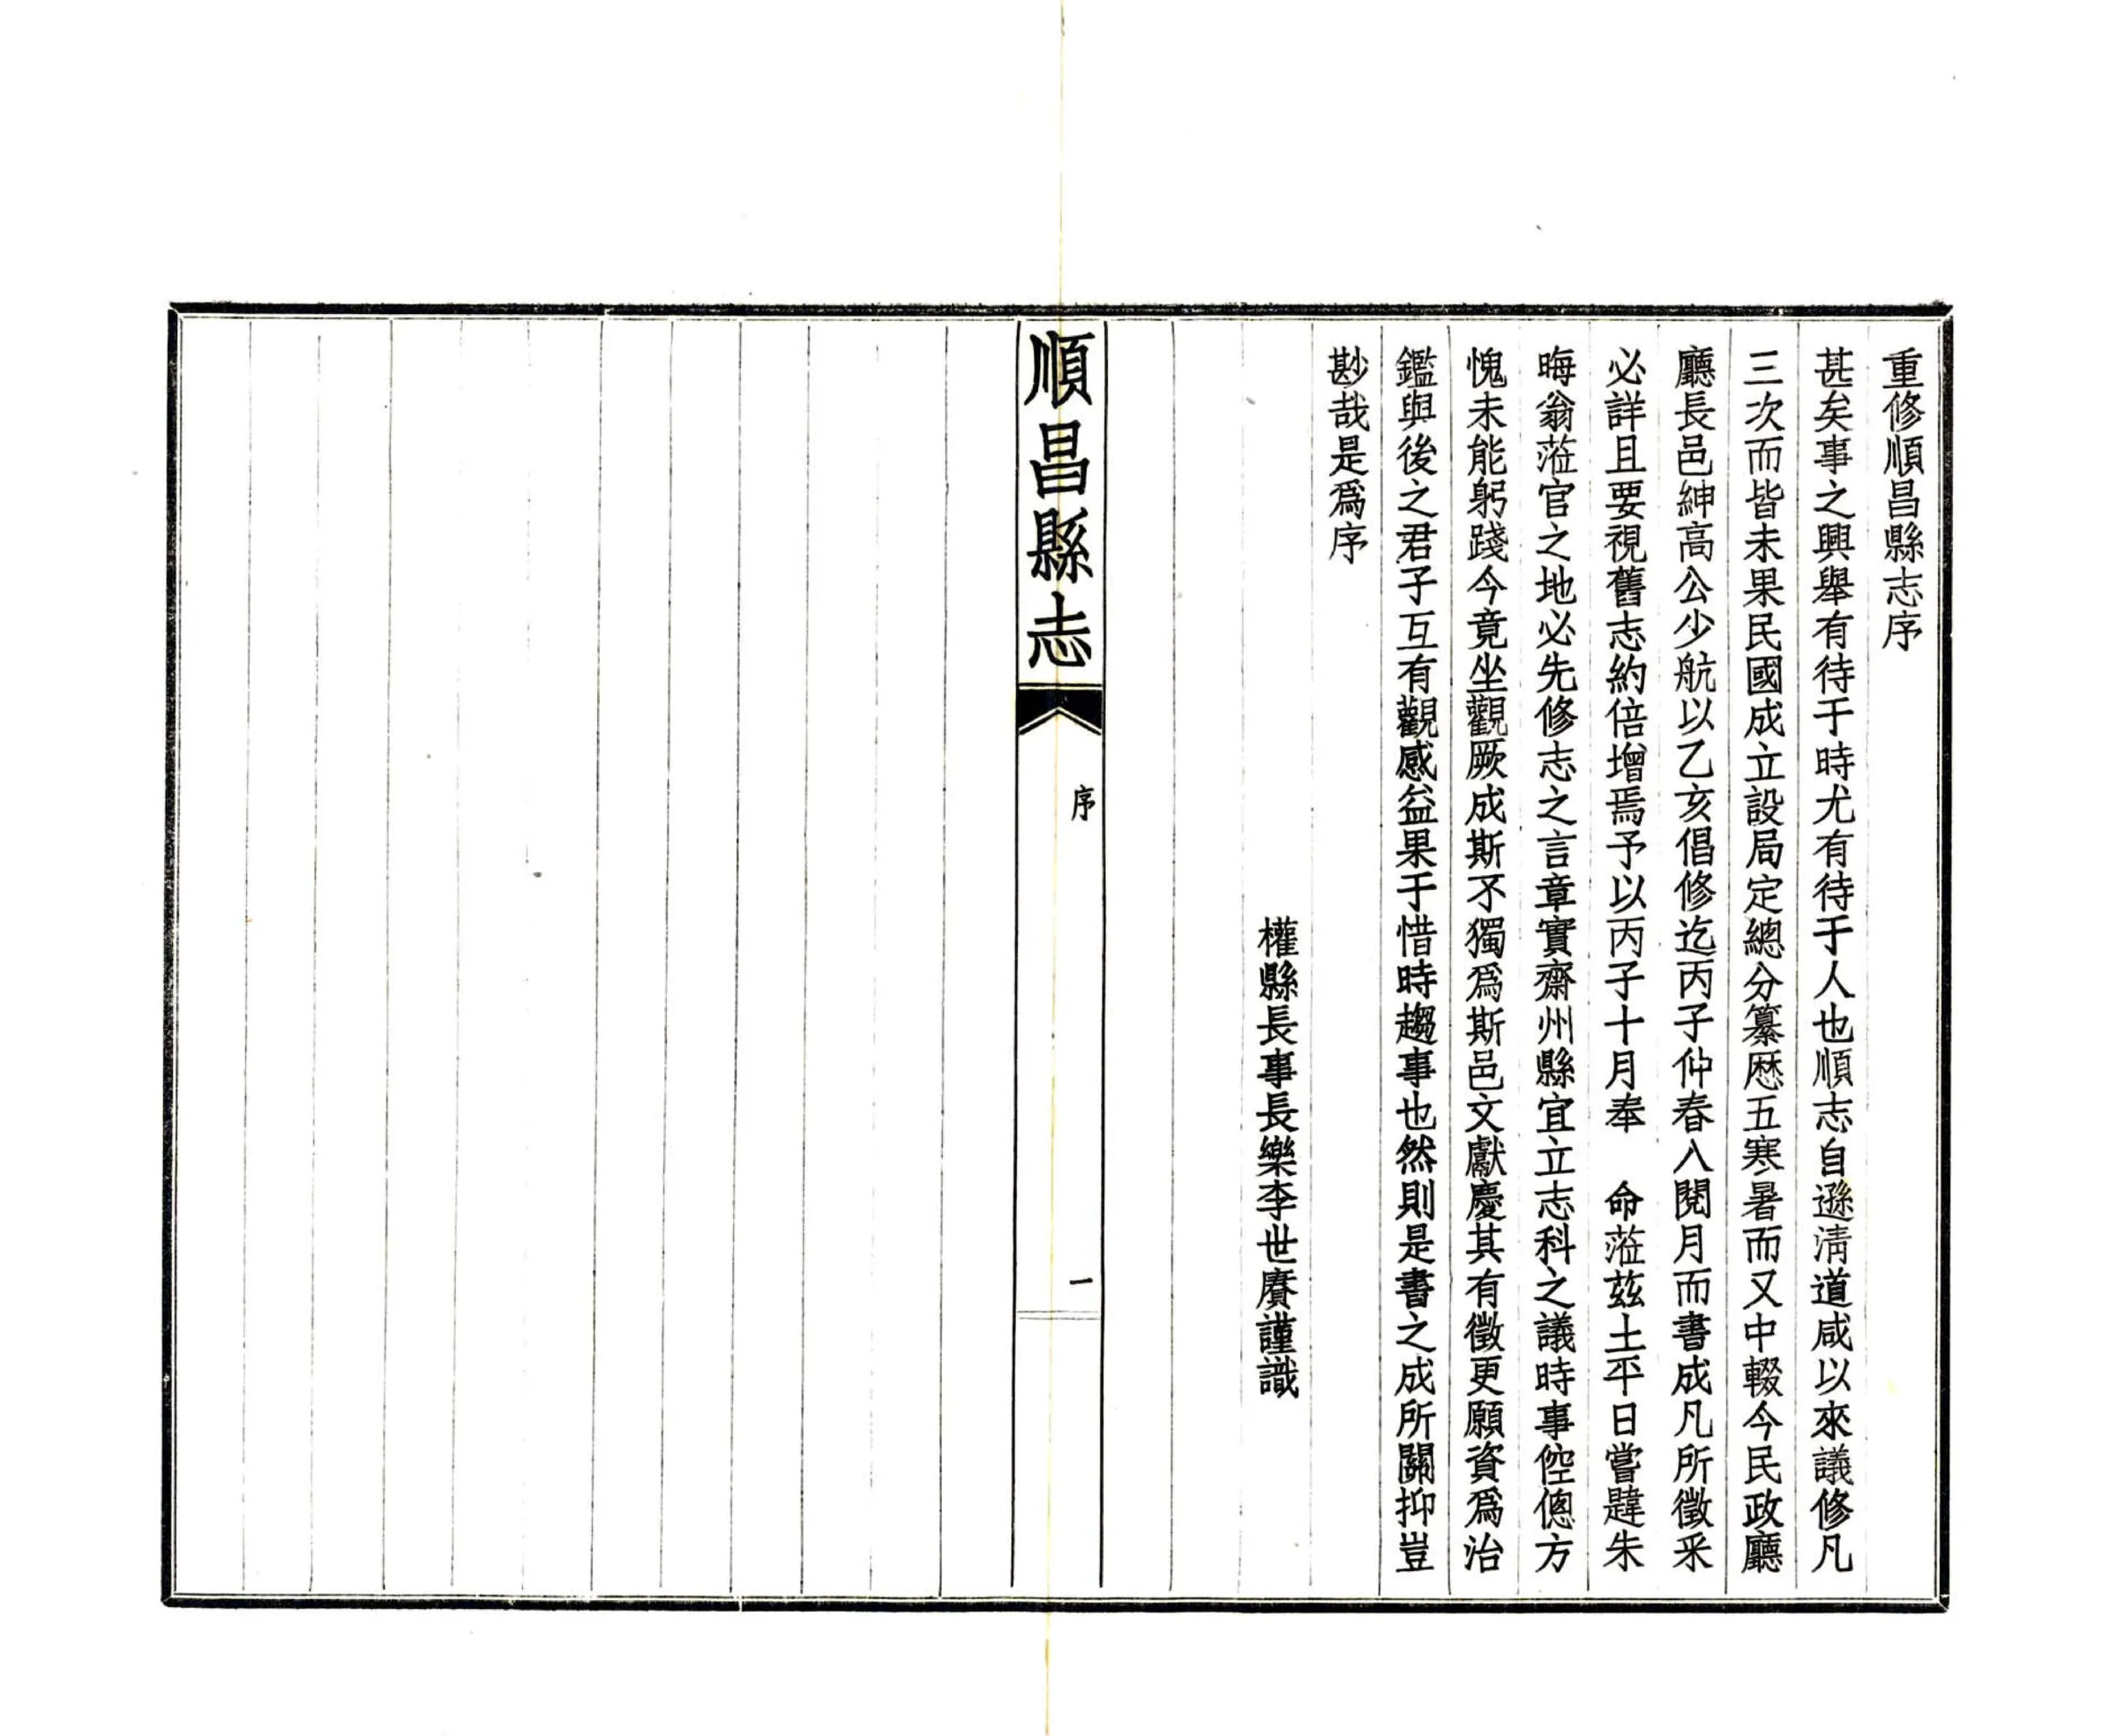 重修順昌縣志序
甚矣事之興舉有待于時尤有待于人也順志自遜淸道咸以來議修凡
三次而皆未果民國成立設局定總分纂歷五寒暑而又中輟今民政廳
廳長邑紳高公少航以乙亥倡修迄丙子仲春八閱月而書成凡所徵采
必詳且要視舊志約倍增焉予以丙子十月奉　命蒞茲土平日嘗韙朱
晦翁蒞官之地必先修志之言章實齋州縣宜立志科之議時事倥傯方
愧未能躬踐今竟坐觀厥成斯不獨爲斯邑文獻慶其有徵更願資爲治
鑑與後之君子互有觀感益果于惜時趨事也然則是書之成所關抑豈
尠哉是爲序
權縣長事長樂李世賡謹識
順昌縣志
序
一